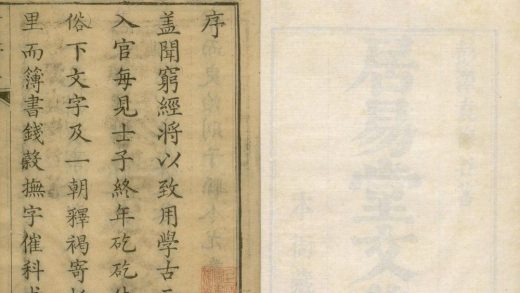 居易堂文
本衙藏
序
盖聞窮經將以致用學古
入官每見士子終年矻矻
俗下文字及一朝釋褐寄
里而簿書錢穀撫字催科